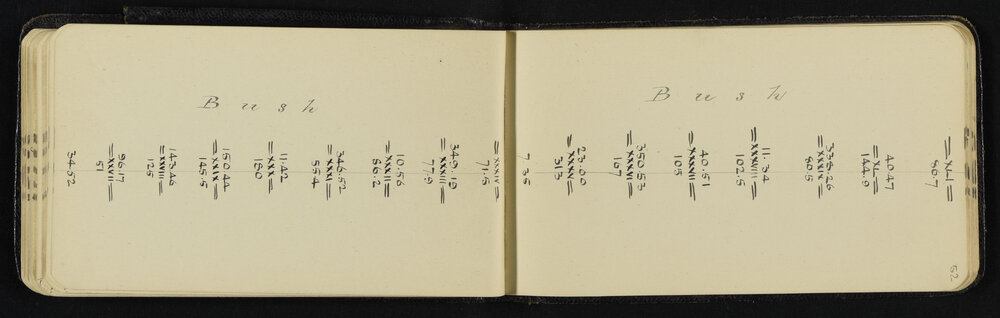 Bush
Bush
34.52
= XXVII =
51
96.17
= XXVIII =
125
143.46
= XXIX =
145.5
150.44
= XXX =
180
11.42
= XXXI =
554
346.52
= XXXII =
86.2
10.56
= XXXIII =
77.9
349.19
= XXXIV =
71.5
7.35
= XXXV =
313
23.00
= XXXVI =
167
350.53
= XXXVII =
105
40.51
= XXXVIII =
102.5
11.34
= XXXIX =
80.5
338.26
= XL =
144.9
40.47
= XLI =
86.7
52